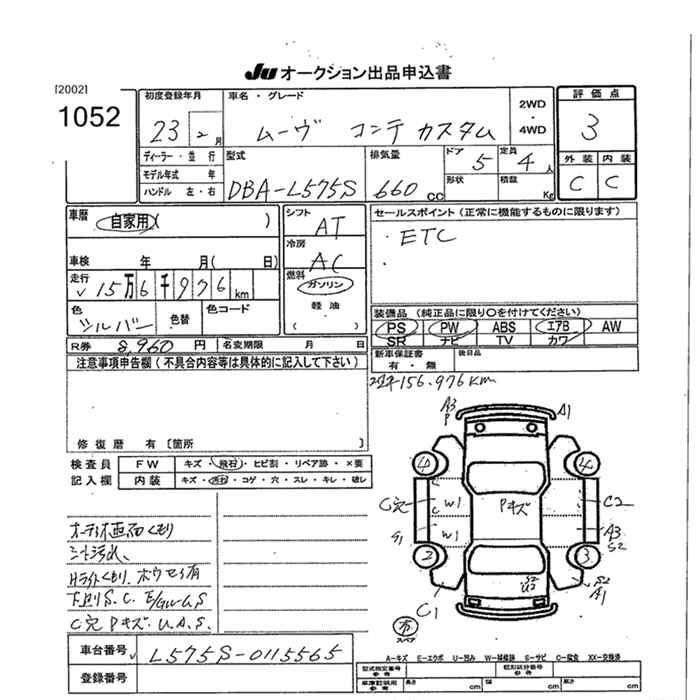 JU オークション出品申込書
[2002]
1052
初度登録年月
23 2月
車名・グレード
ムーヴ コンテ カスタム
2WD
・
4WD
評価点
3
外装 内装
C C
ディーラー・並行
モデル年式 年
ハンドル 左・右
型式
DBA-L575S
排気量
660 cc
ドア 5
形状
定員 4 人
積載 Kg
車歴
自家用( )
車検 年 月( 日)
走行
15万6千976 km
色
シルバー
色替
色コード
シフト
AT
冷房
AC
燃料
ガソリン
軽油
( )
セールスポイント (正常に機能するものに限ります)
・ETC
・
装備品 (純正品に限り○を付けてください)
PS PW ABS エアB AW
SR ナビ TV カワ
R券 8,960 円
名変期限 月 日
新車保証書
有・無
後日品
156.976km
注意事項申告欄 (不具合内容等は具体的に記入して下さい)
修復歴 有 [箇所 ]
検査員
記入欄
FW キズ・飛石・ヒビ割・リペア跡・×要
内装 キズ・汚れ・コゲ・穴・スレ・キレ・破レ
オーディオ画面くもり
シート汚れ、
Hライトくもり.
下廻りS.C.
C穴 Pキズ. U.A.S.
A3
P
A1
4 4
C穴 W1 Pキズ C2
S1 W1 A3
S2
2 3
C1
S2
U2
S2
A1
スペア
A-キズ E-エクボ U-凹み W-補修跡 S-サビ C-腐食 XX-交換済
車台番号 L575S-0115565
登録番号
型式指定番号
参考
類別区分番号
参考
車庫証明用
参考
長さ cm
幅 cm
高さ cm